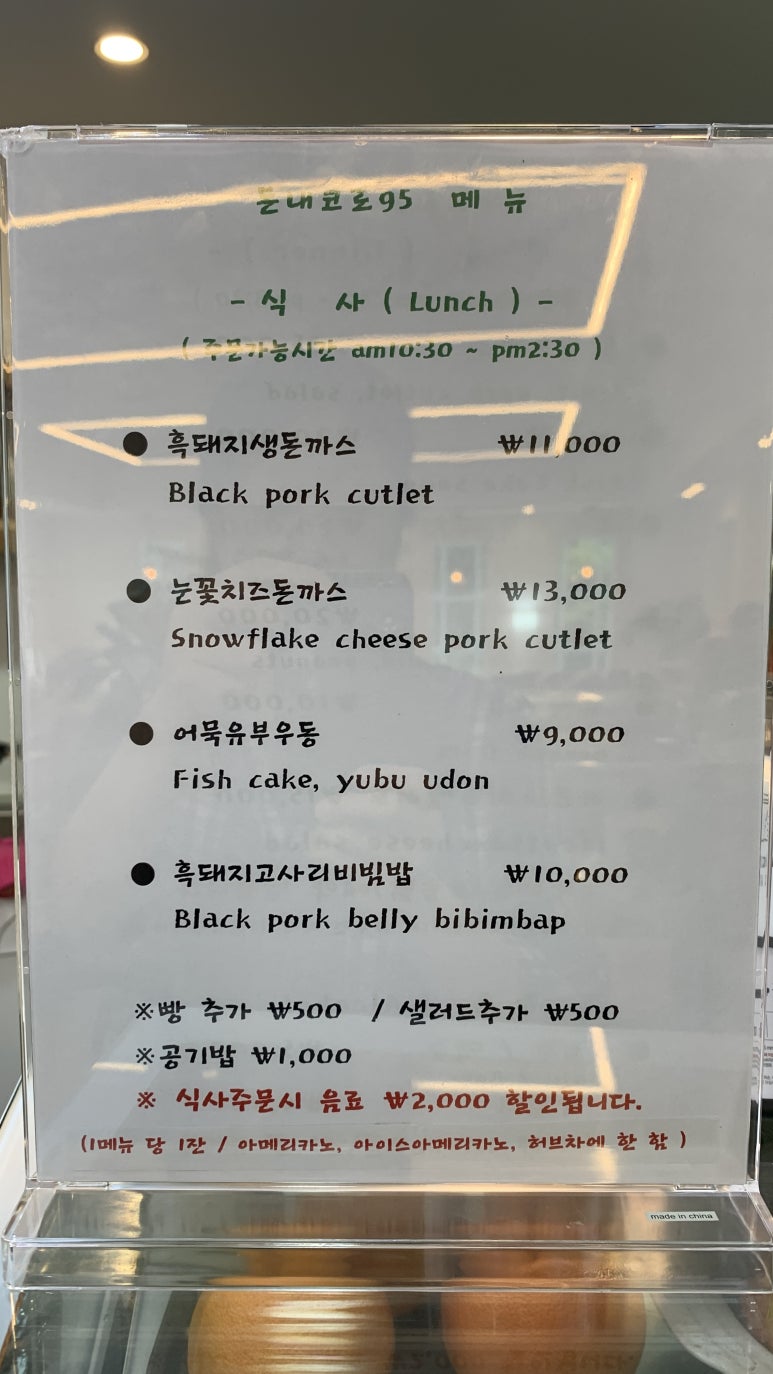 돈내코로95 메 뉴
- 식 사 ( Lunch ) -
( 주문가능시간 am10:30 ~ pm2:30 )
● 흑돼지생돈까스 ₩11,000
Black pork cutlet
● 눈꽃치즈돈까스 ₩13,000
Snowflake cheese pork cutlet
● 어묵유부우동 ₩9,000
Fish cake, yubu udon
● 흑돼지고사리비빔밥 ₩10,000
Black pork belly bibimbap
※빵 추가 ₩500 / 샐러드추가 ₩500
※공기밥 ₩1,000
※ 식사주문시 음료 ₩2,000 할인됩니다.
(1메뉴 당 1잔 / 아메리카노, 아이스아메리카노, 허브차에 한 함 )
made in china